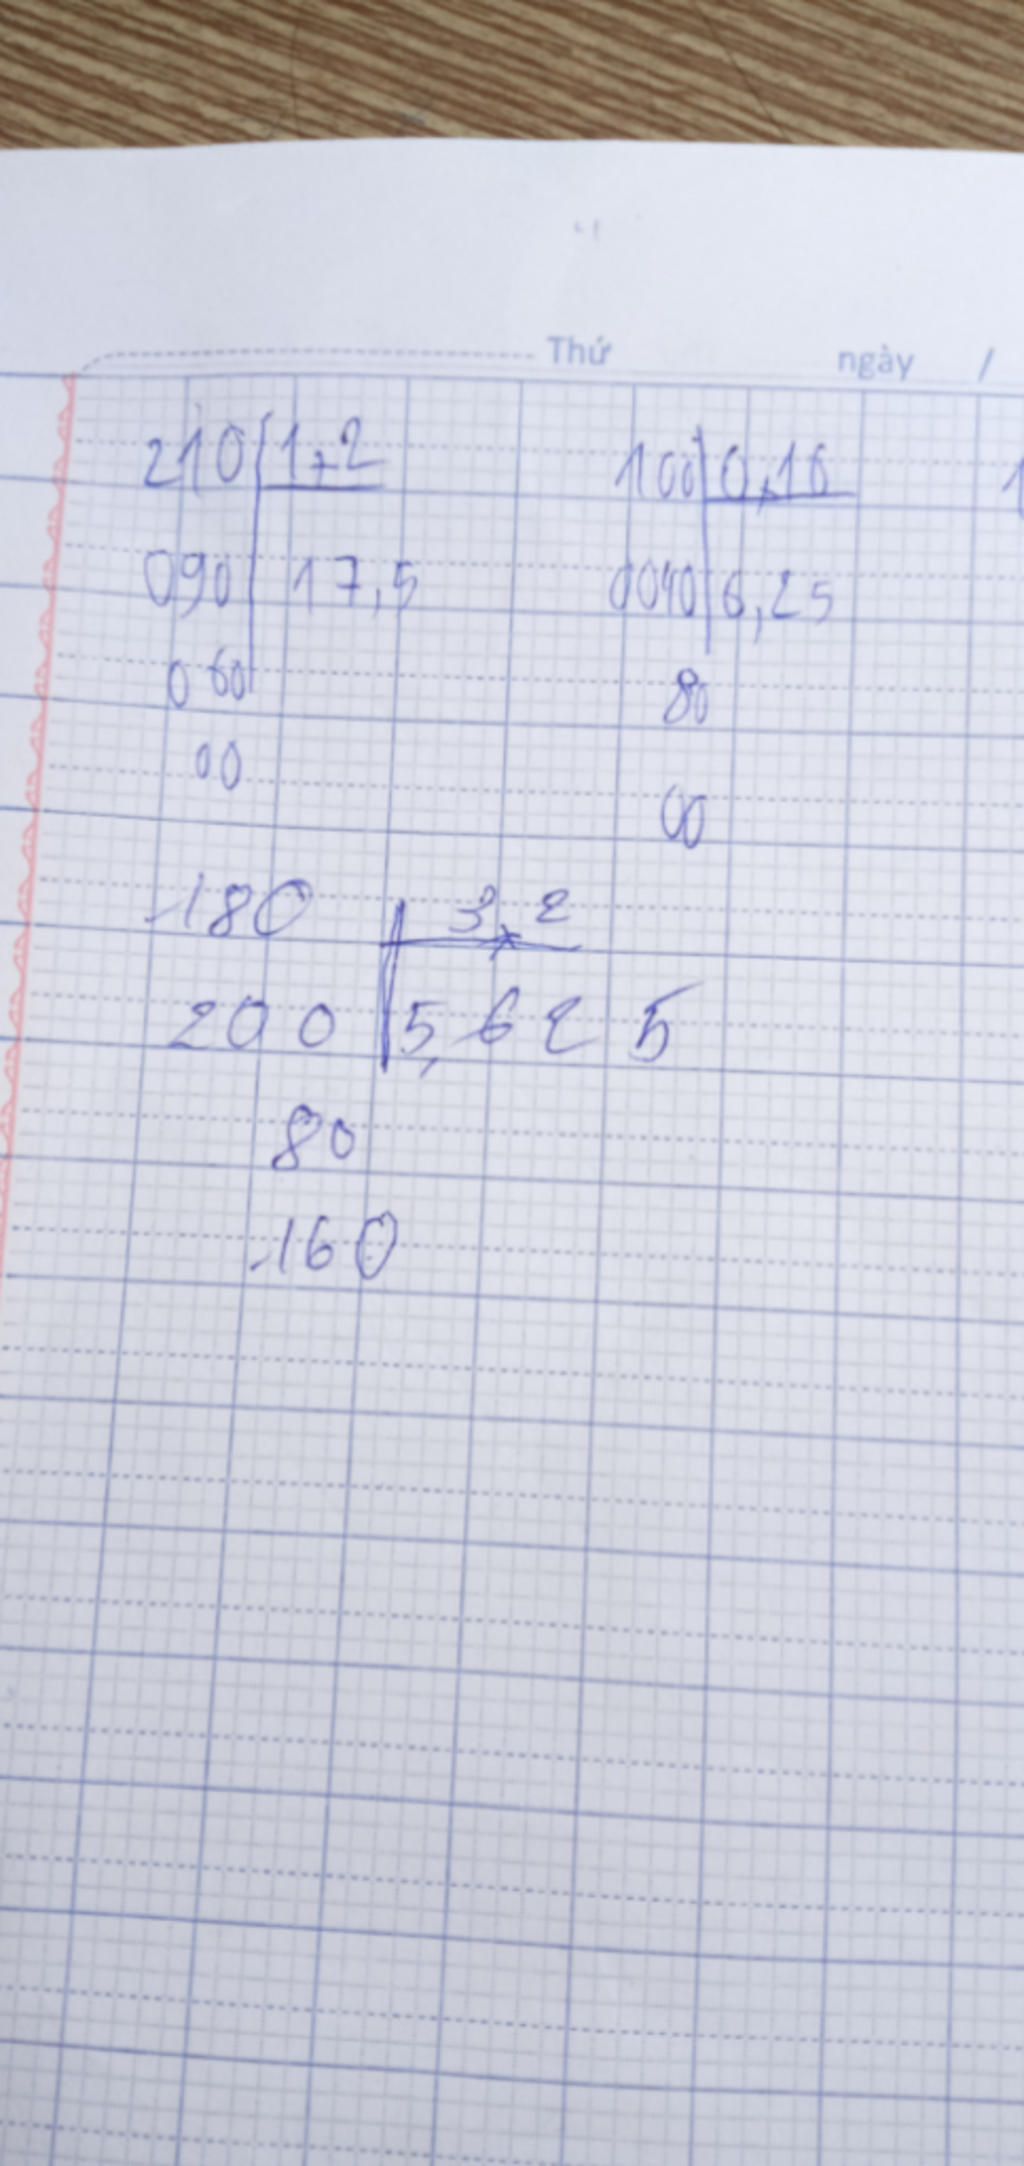 Thứ ngày /
210 1,2 100 0,16 1
090 17,5 0040 6,25
060 80
00 00
180 3,2
200 5,625
80
160